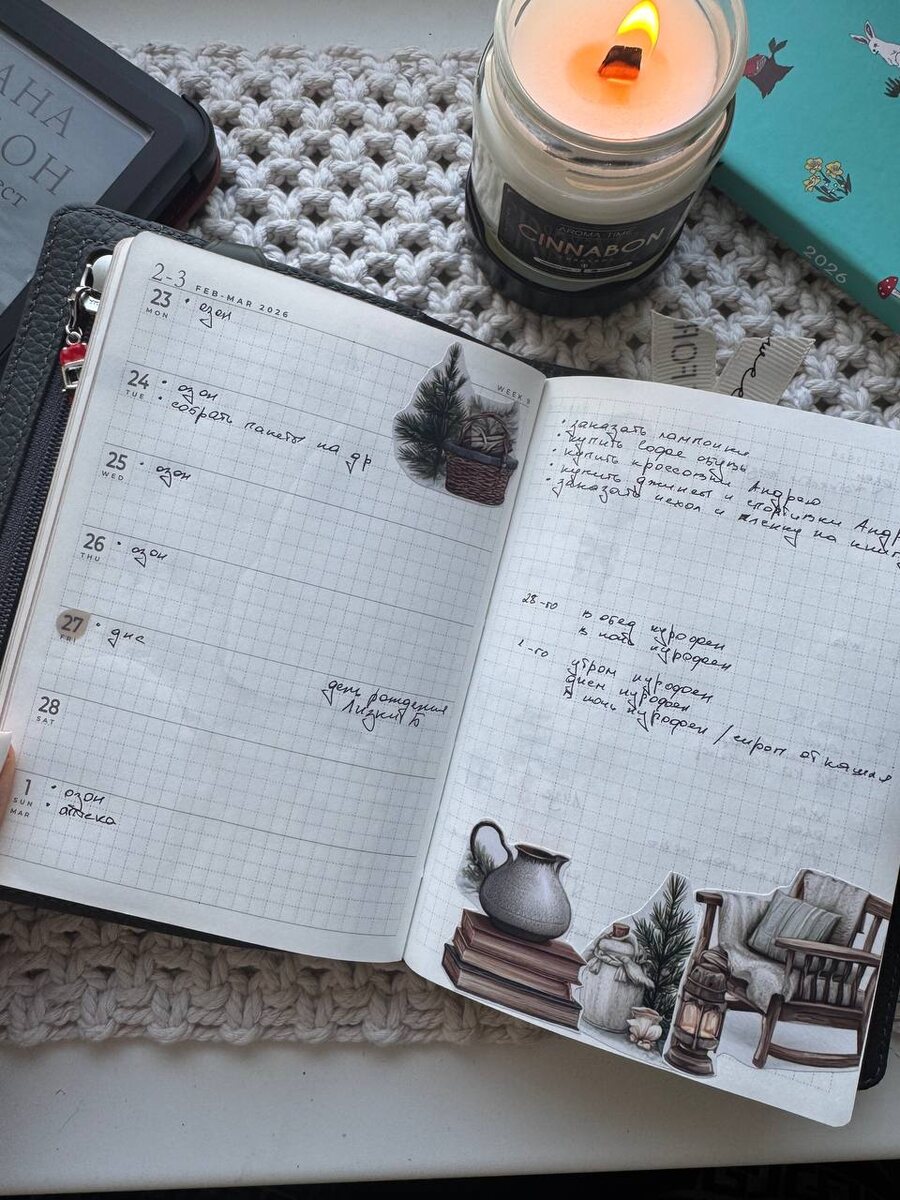 АНА
ОН
РСТ
AROMA TIME
CINNABON
2026
НОЕ
2-3 FEB-MAR 2026
WEEK 9
23 • озон
MON
24 • озон
TUE • собрать пакеты на др
25 • озон
WED
26 • озон
THU
27 • днс
FRI
день рождения
Лизки Б
28
SAT
1 • озон
SUN • аптека
MAR
• заказать лампочки
• купить Софе обувь
• купить кроссовки Андрею
• купить джинсы и спортивки Андр
• заказать чехол и пленку на книгу
28-го в обед нурофен
в ночь нурофен
1-го утром нурофен
днем нурофен
в ночь нурофен / сироп от кашля